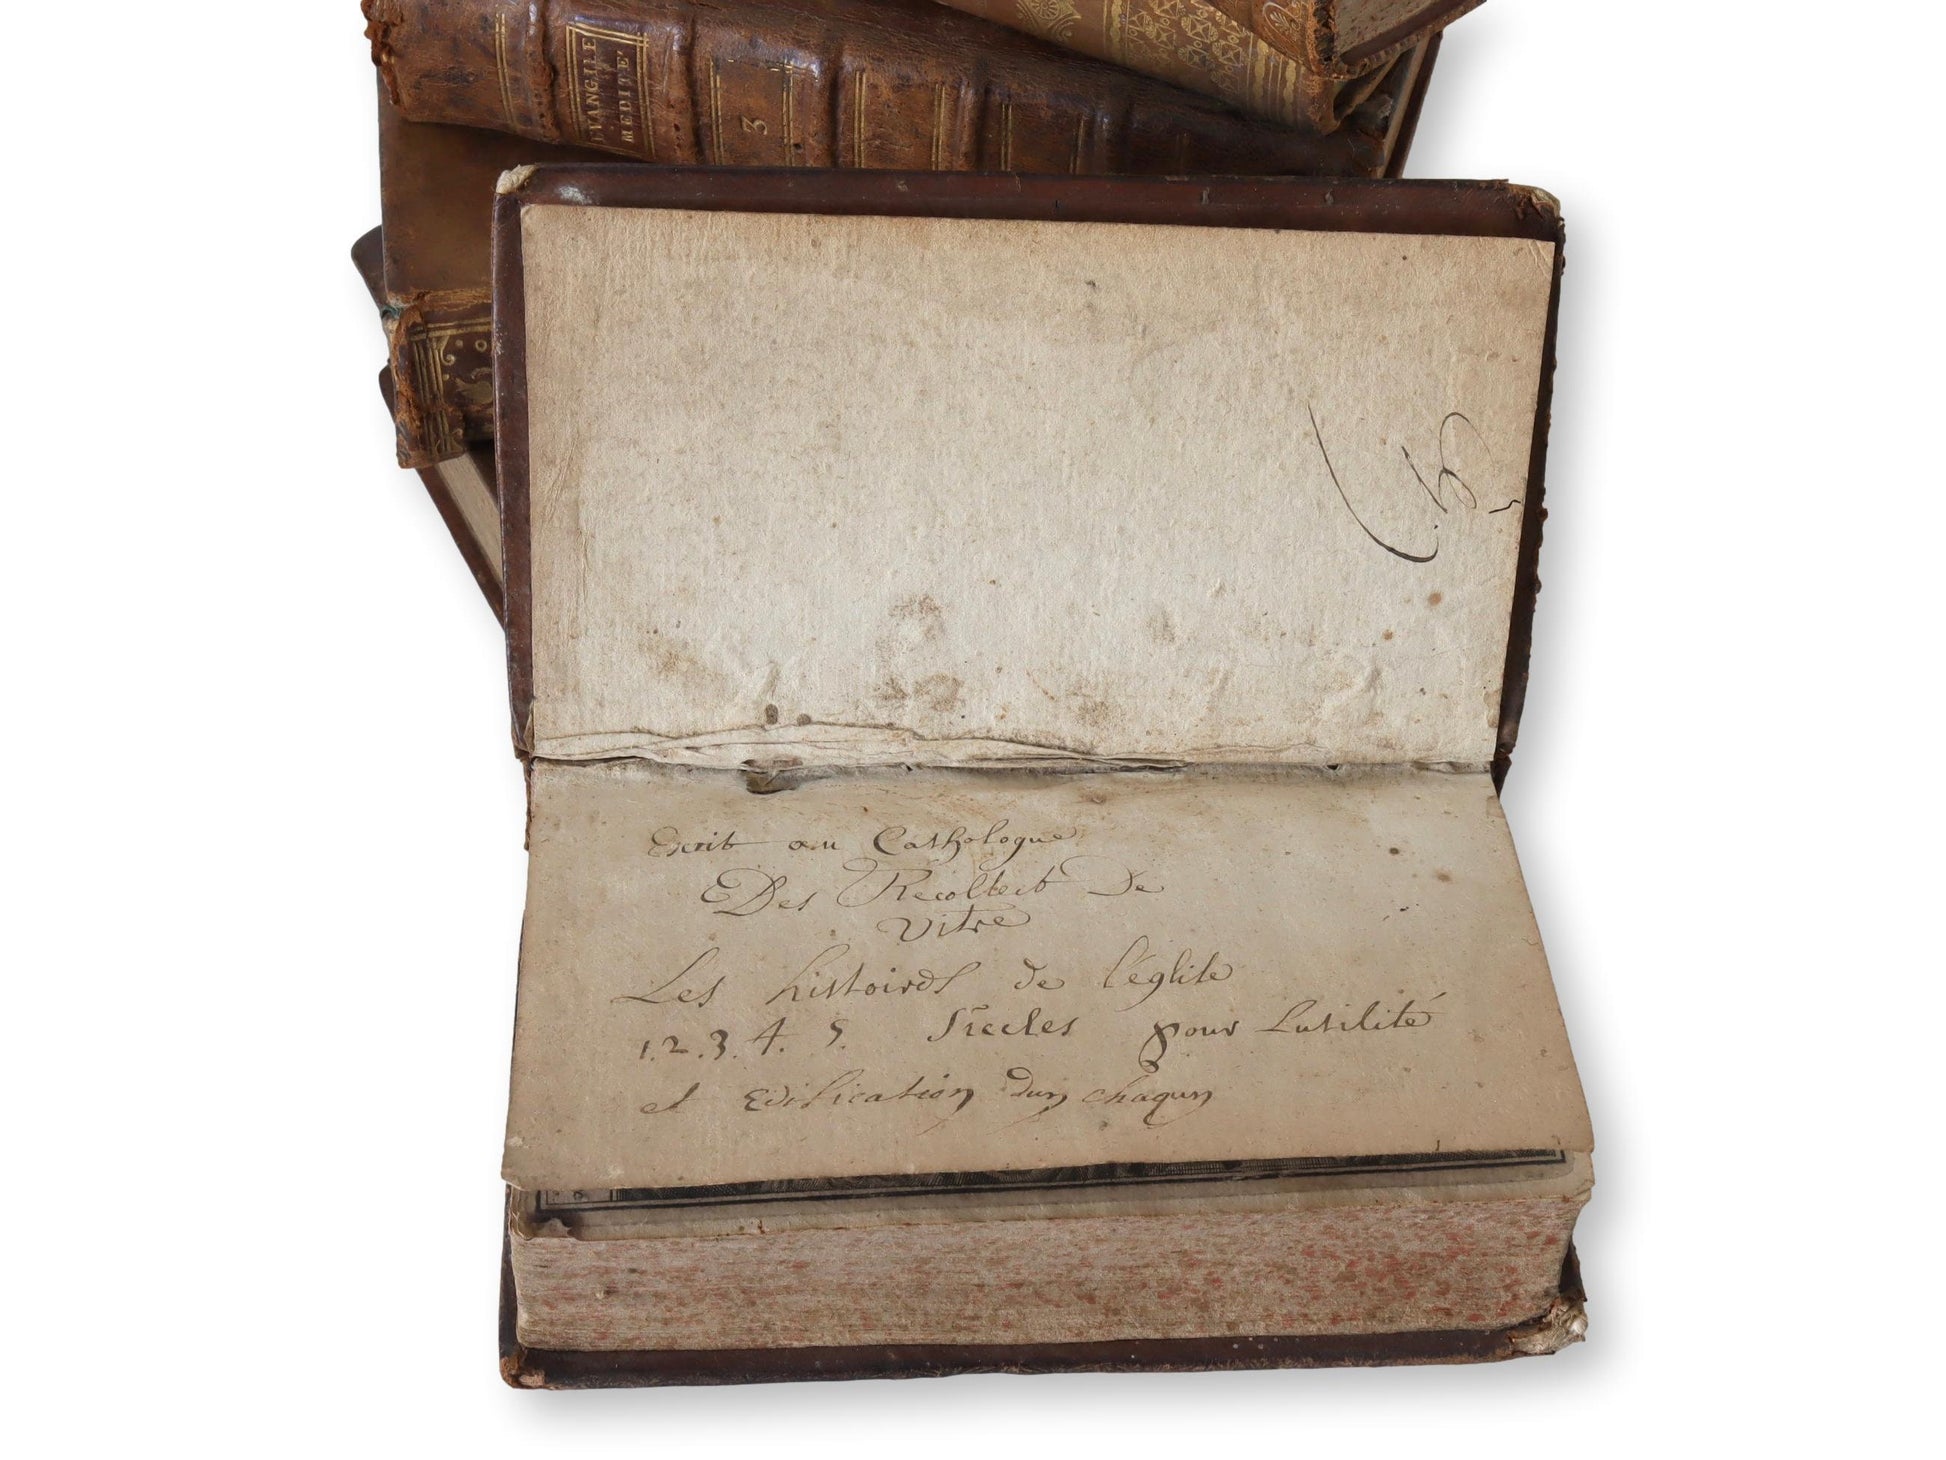 EVANGILE
MEDITE'
3
Escrit au Cathologue
Des Recollect De
Vitre
Les histoires de l'église
1.2.3.4.5. Siecles pour Lutilité
et Edification dun chaqun